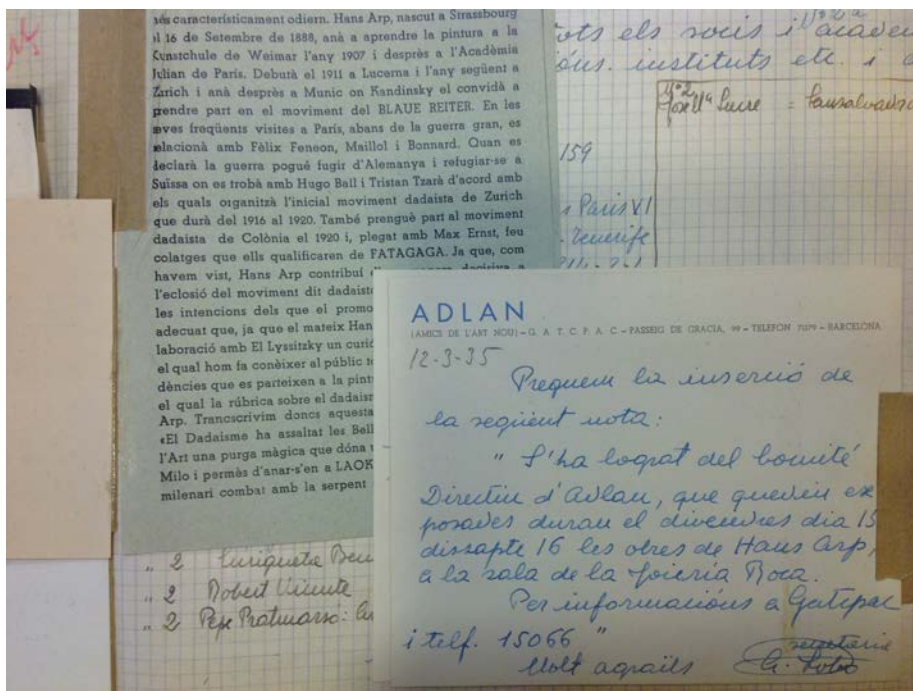 més característicament odiern. Hans Arp, nascut a Strassbourg
el 16 de Setembre de 1888, anà a aprendre la pintura a la
Kunstchule de Weimar l'any 1907 i desprès a l'Acadèmia
Julian de París. Debutà el 1911 a Lucerna i l'any següent a
Zurich i anà desprès a Munic on Kandinsky el convidà a
prendre part en el moviment del BLAUE REITER. En les
seves freqüents visites a París, abans de la guerra gran, es
relacionà amb Fèlix Feneon, Maillol i Bonnard. Quan es
declarà la guerra pogué fugir d'Alemanya i refugiar-se a
Suïssa on es trobà amb Hugo Ball i Tristan Tzarà d'acord amb
els quals organitzà l'inicial moviment dadaista de Zurich
que durà del 1916 al 1920. També prengué part al moviment
dadaista de Colònia el 1920 i, plegat amb Max Ernst, feu
colatges que ells qualificaren de FATAGAGA. Ja que, com
havem vist, Hans Arp contribuí
l'eclosió del moviment dit dadaist
les intencions dels que el promo
adequat que, ja que el mateix Han
laboració amb El Lyssitzky un curió
el qual hom fa conèixer al públic
dències que es parteixen a la pint
el qual la rúbrica sobre el dadaism
Arp. Transcrivim doncs aquesta
«El Dadaisme ha assaltat les Bell
l'Art una purga màgica que dóna
Milo i permès d'anar-s'en a LAOK
milenari combat amb la serpent
tots els socis i acadèm
instituts etc. i
Nº 2
Josep Mª Sucre =
159
Paris VI
Tenerife
„ 2 Enriqueta Ben
„ 2 Robert Vicente
„ 2 Pepe Pratmarsó:
ADLAN
(AMICS DE L'ART NOU) - G. A. T. C. P. A. C. - PASSEIG DE GRACIA, 99 - TELEFON 71579 - BARCELONA
12-3-35
Preguem la inserció de
la següent nota:
" S'ha lograt del Comité
Directiu d'Adlan, que quedin ex
posades duran el divendres dia 15
dissapte 16 les obres de Hans Arp,
a la sala de la Joieria Roca.
Per informacións a Gatcpac
i telf. 15066 "
Molt agraïts
secretaria